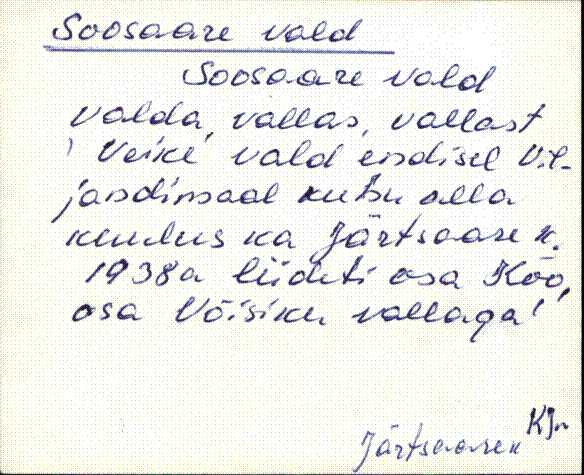 Soosaare vald
Soosaare vald
valda, vallas, vallast
'Veike vald endisel Vil-
jandimaal kuhu alla
kuulus ka Järtsaare k.
1938a liideti osa Kõo,
osa Võisiku vallaga!'
KJn
Järtsaare k